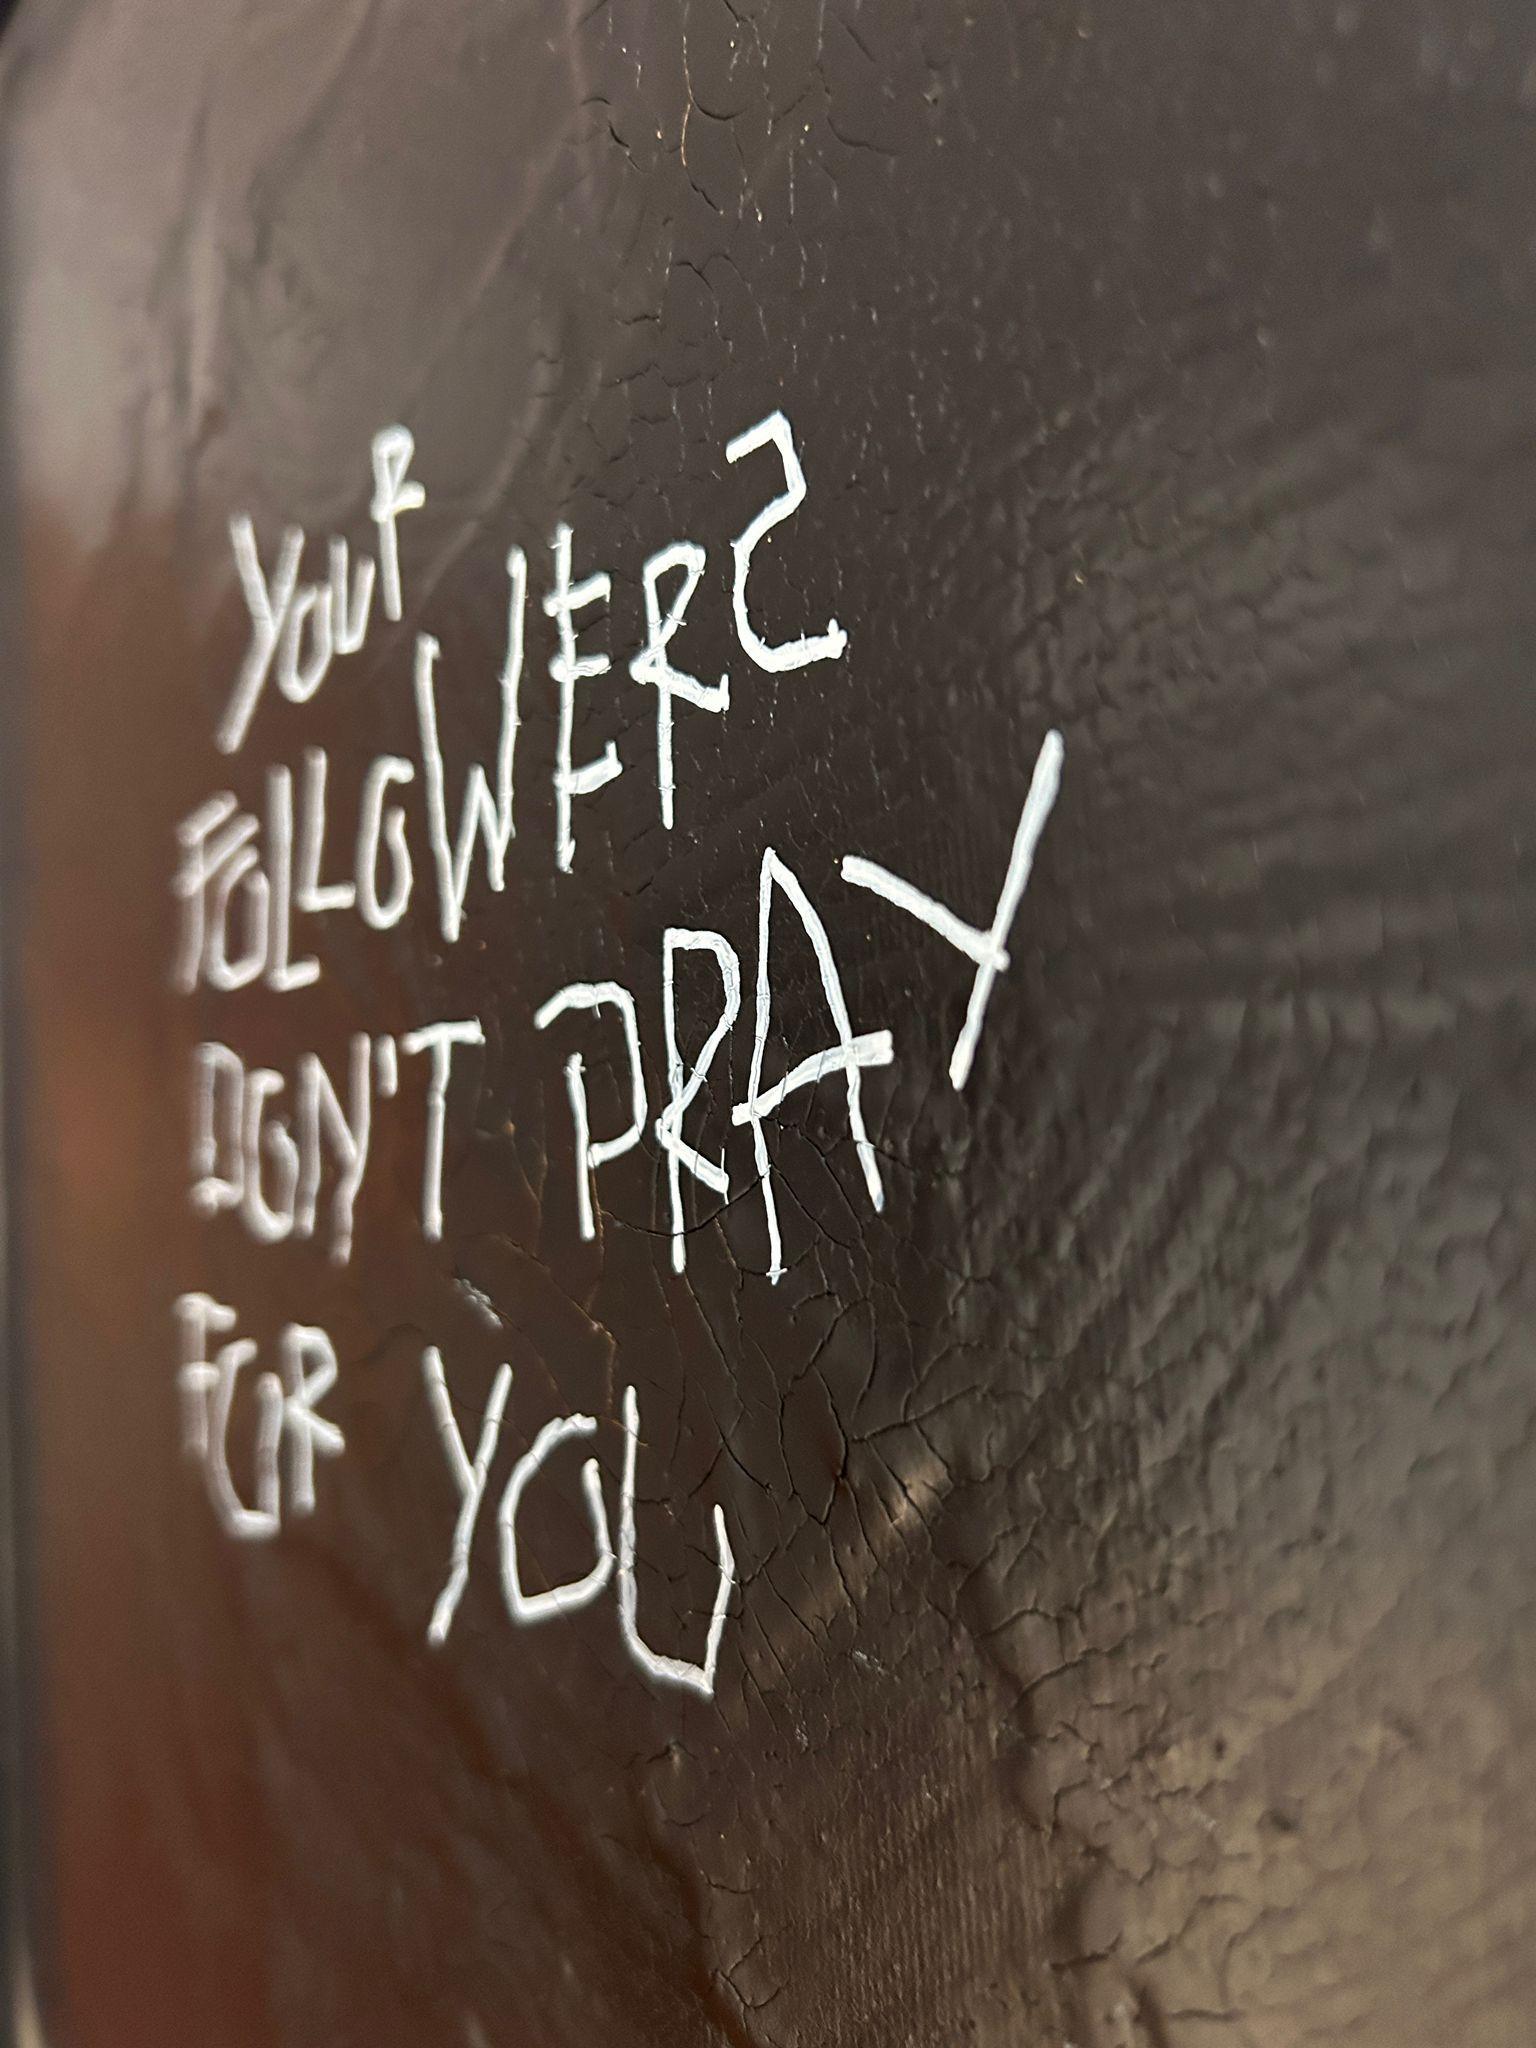 YOUR
FOLLOWERS
DON'T PRAY
FOR YOU